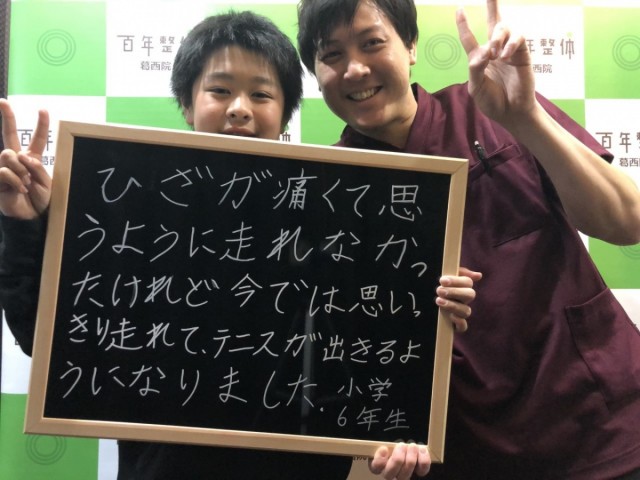 百年整体
葛西院
百年整体
葛西院
百年整
ひざが痛くて思
うように走れなかっ
たけれど今では思いっ
きり走れて、テニスが出きるよ
うになりました.
小学
6年生